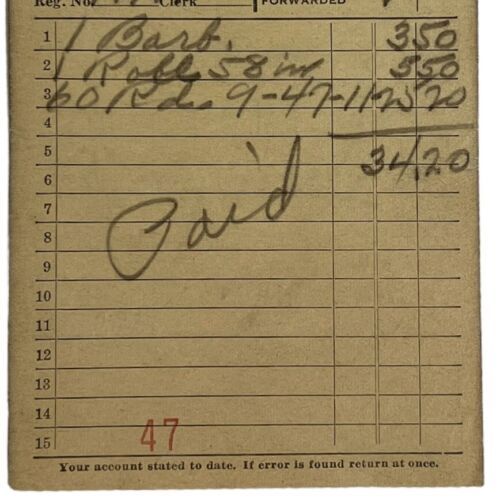 Reg. No. Clerk FORWARDED
1 1 Barb. 3 50
2 1 Roll 58 in 5 50
3 60 Rds 9-47-11 25 20
4
5 34.20
6
7 Paid
8
9
10
11
12
13
14
15 47
Your account stated to date. If error is found return at once.